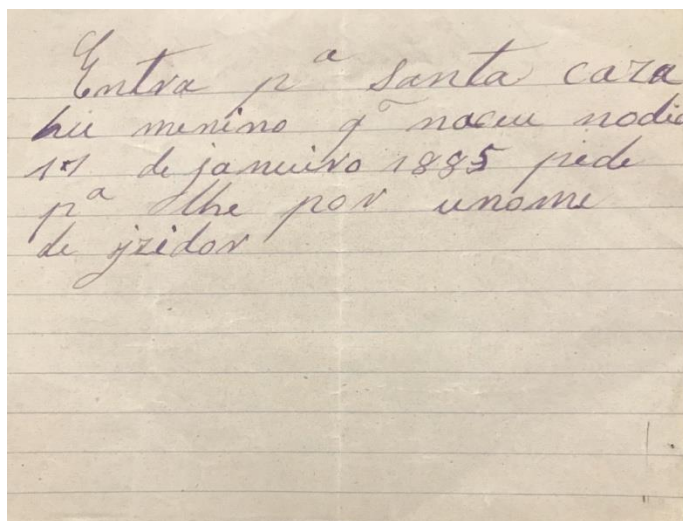 Entra pª santa caza
hu menino q̃ naceu nodia
17 de januivo 1885 piede
pª lhe por unome
de jzidor